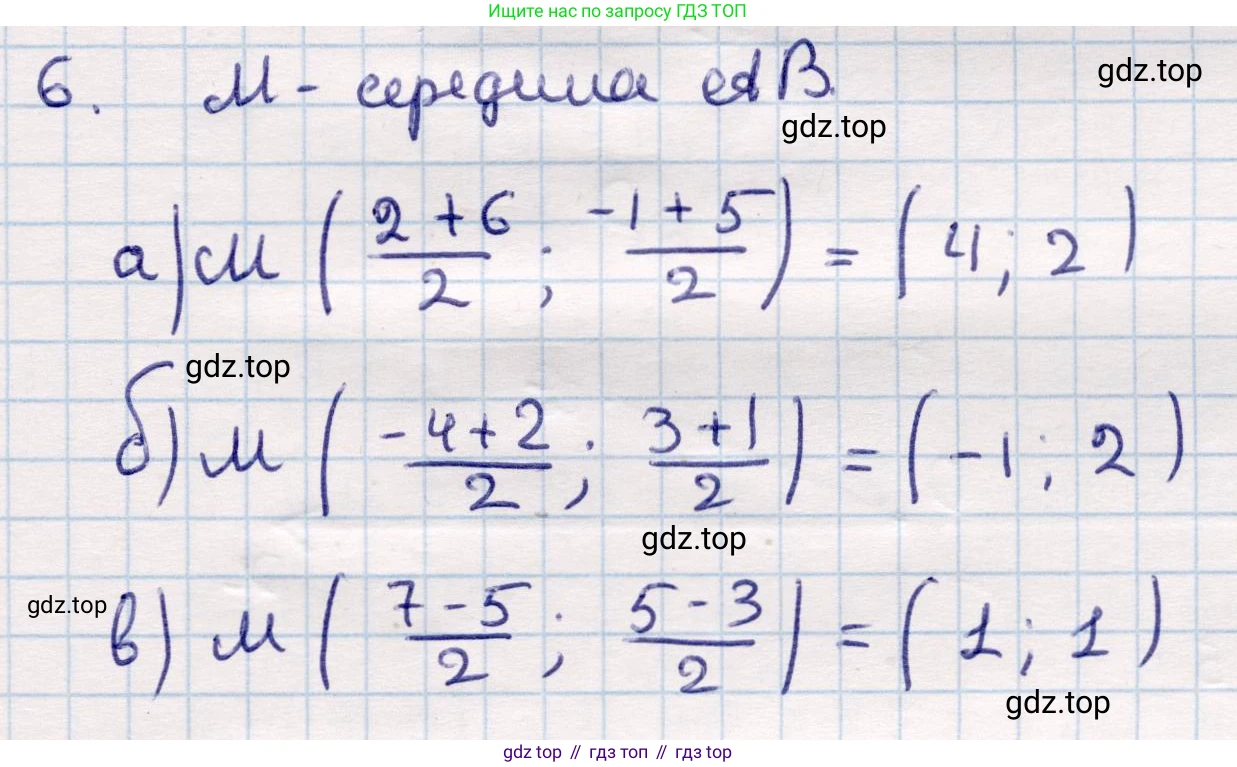 Ищите нас по запросу ГДЗ ТОП
6. М - середина АВ.
gdz.top
gdz.top
а) М ( (2 + 6)/2 ; (-1 + 5)/2 ) = ( 4 ; 2 )
gdz.top
б) М ( (-4 + 2)/2 ; (3 + 1)/2 ) = ( -1 ; 2 )
gdz.top
gdz.top
в) М ( (7 - 5)/2 ; (5 - 3)/2 ) = ( 1 ; 1 )
gdz.top
gdz top // гдз топ // гдз top